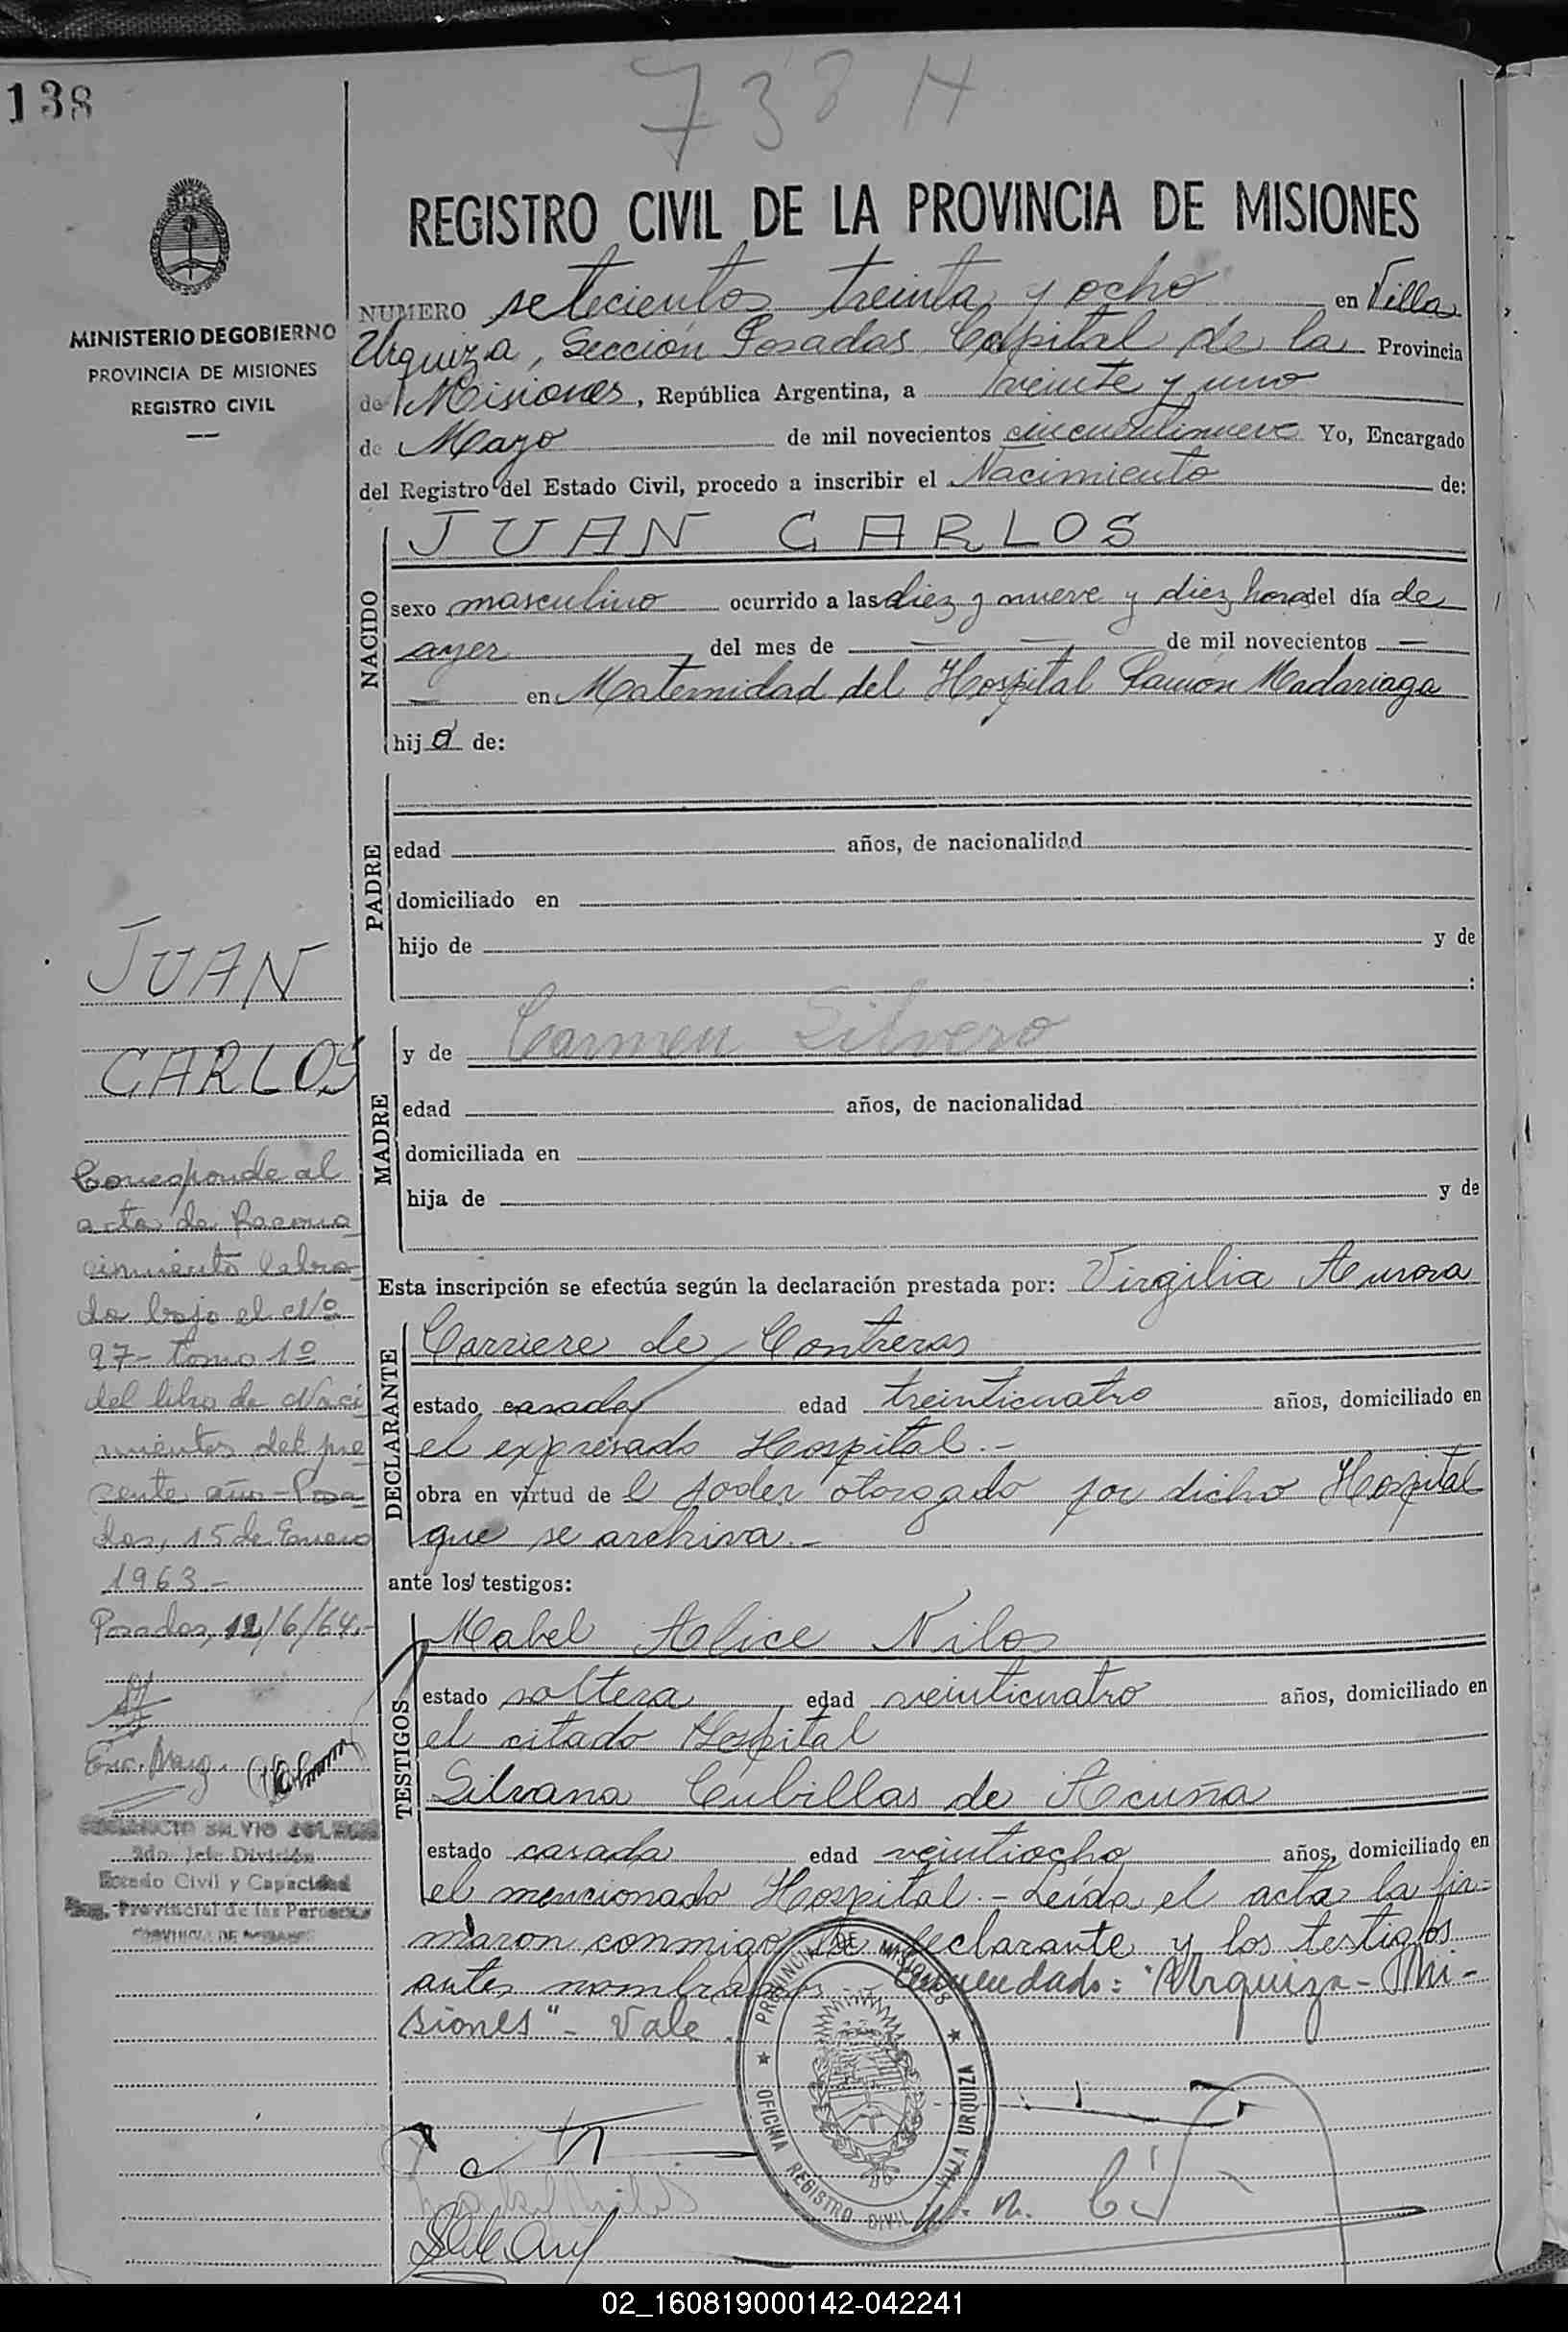 138
738 H
MINISTERIO DE GOBIERNO
PROVINCIA DE MISIONES
REGISTRO CIVIL
REGISTRO CIVIL DE LA PROVINCIA DE MISIONES
NUMERO setecientos treinta y ocho en Villa
Urquiza, Sección Posadas Capital de la Provincia
de Misiones, República Argentina, a veinte y uno
de Mayo de mil novecientos cincuentinueve Yo, Encargado
del Registro del Estado Civil, procedo a inscribir el Nacimiento de:
NACIDO
JUAN CARLOS
sexo masculino ocurrido a las diez y nueve y diez horas del día de
ayer del mes de — — de mil novecientos —
— en Maternidad del Hospital Ramón Madariaga
hijo de:
PADRE
edad años, de nacionalidad
domiciliado en
hijo de y de
:
MADRE
y de Carmen Silvero
edad años, de nacionalidad
domiciliada en
hija de y de
Esta inscripción se efectúa según la declaración prestada por: Virgilia Aurora
DECLARANTE
Carriere de Contreras
estado casada edad treinticuatro años, domiciliado en
el expresado Hospital.-
obra en virtud de el poder otorgado por dicho Hospital
que se archiva.-
ante los testigos:
TESTIGOS
Mabel Alice Nilos
estado soltera edad veinticuatro años, domiciliado en
el citado Hospital
Silvana Cubillas de Acuña
estado casada edad veintiocho años, domiciliado en
el mencionado Hospital.- Leída el acta la fir=
maron conmigo la declarante y los testigos
antes nombrados Enmendado: "Urquiza - Mi-
siones" - Vale.
JUAN
CARLOS
Corresponde al
acta de Recono
cimiento labra-
da bajo el Nº
97 - tomo 1º
del libro de Naci
mientos del pre
sente año - Posa
das, 15 de Enero
1963.-
Posadas, 12/6/64.-
SILVIO
2do. Jefe División
Estado Civil y Capacidad
Reg. Provincial de las Personas
PROVINCIA DE MISIONES
PROVINCIA DE MISIONES
OFICINA REGISTRO CIVIL VILLA URQUIZA
02_160819000142-042241